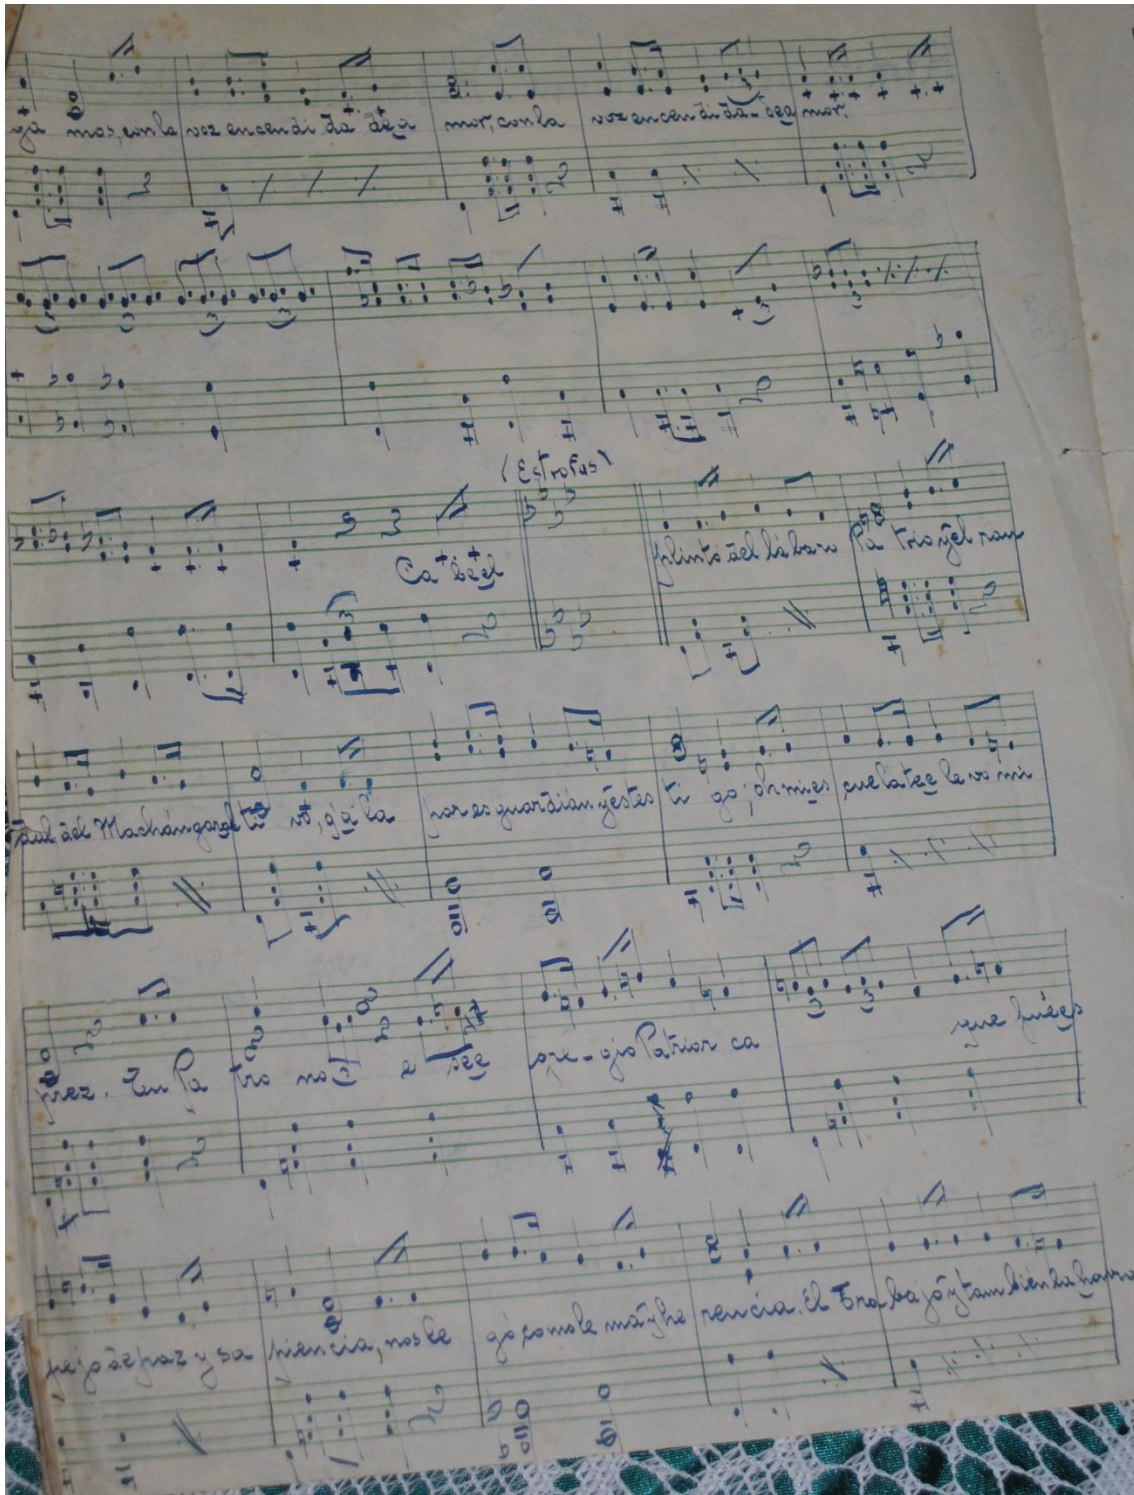 ga mos, con la voz encendi da de a mor, con la voz encendi da - de a mor.
(Estrofas)
Ca be el plinto del lábaro Pa trio y el rau
dal del Machángara al ti vo, q a la por es guardián y es tes ti go, oh mi es cuela te e le vo mi
prez. Un Pa tro no e se e gre - gio Patriar ca que fué es
pejo de paz y sa piencia, nos le gó como le ma y he rencia. El tra bajo y tam bién la honra